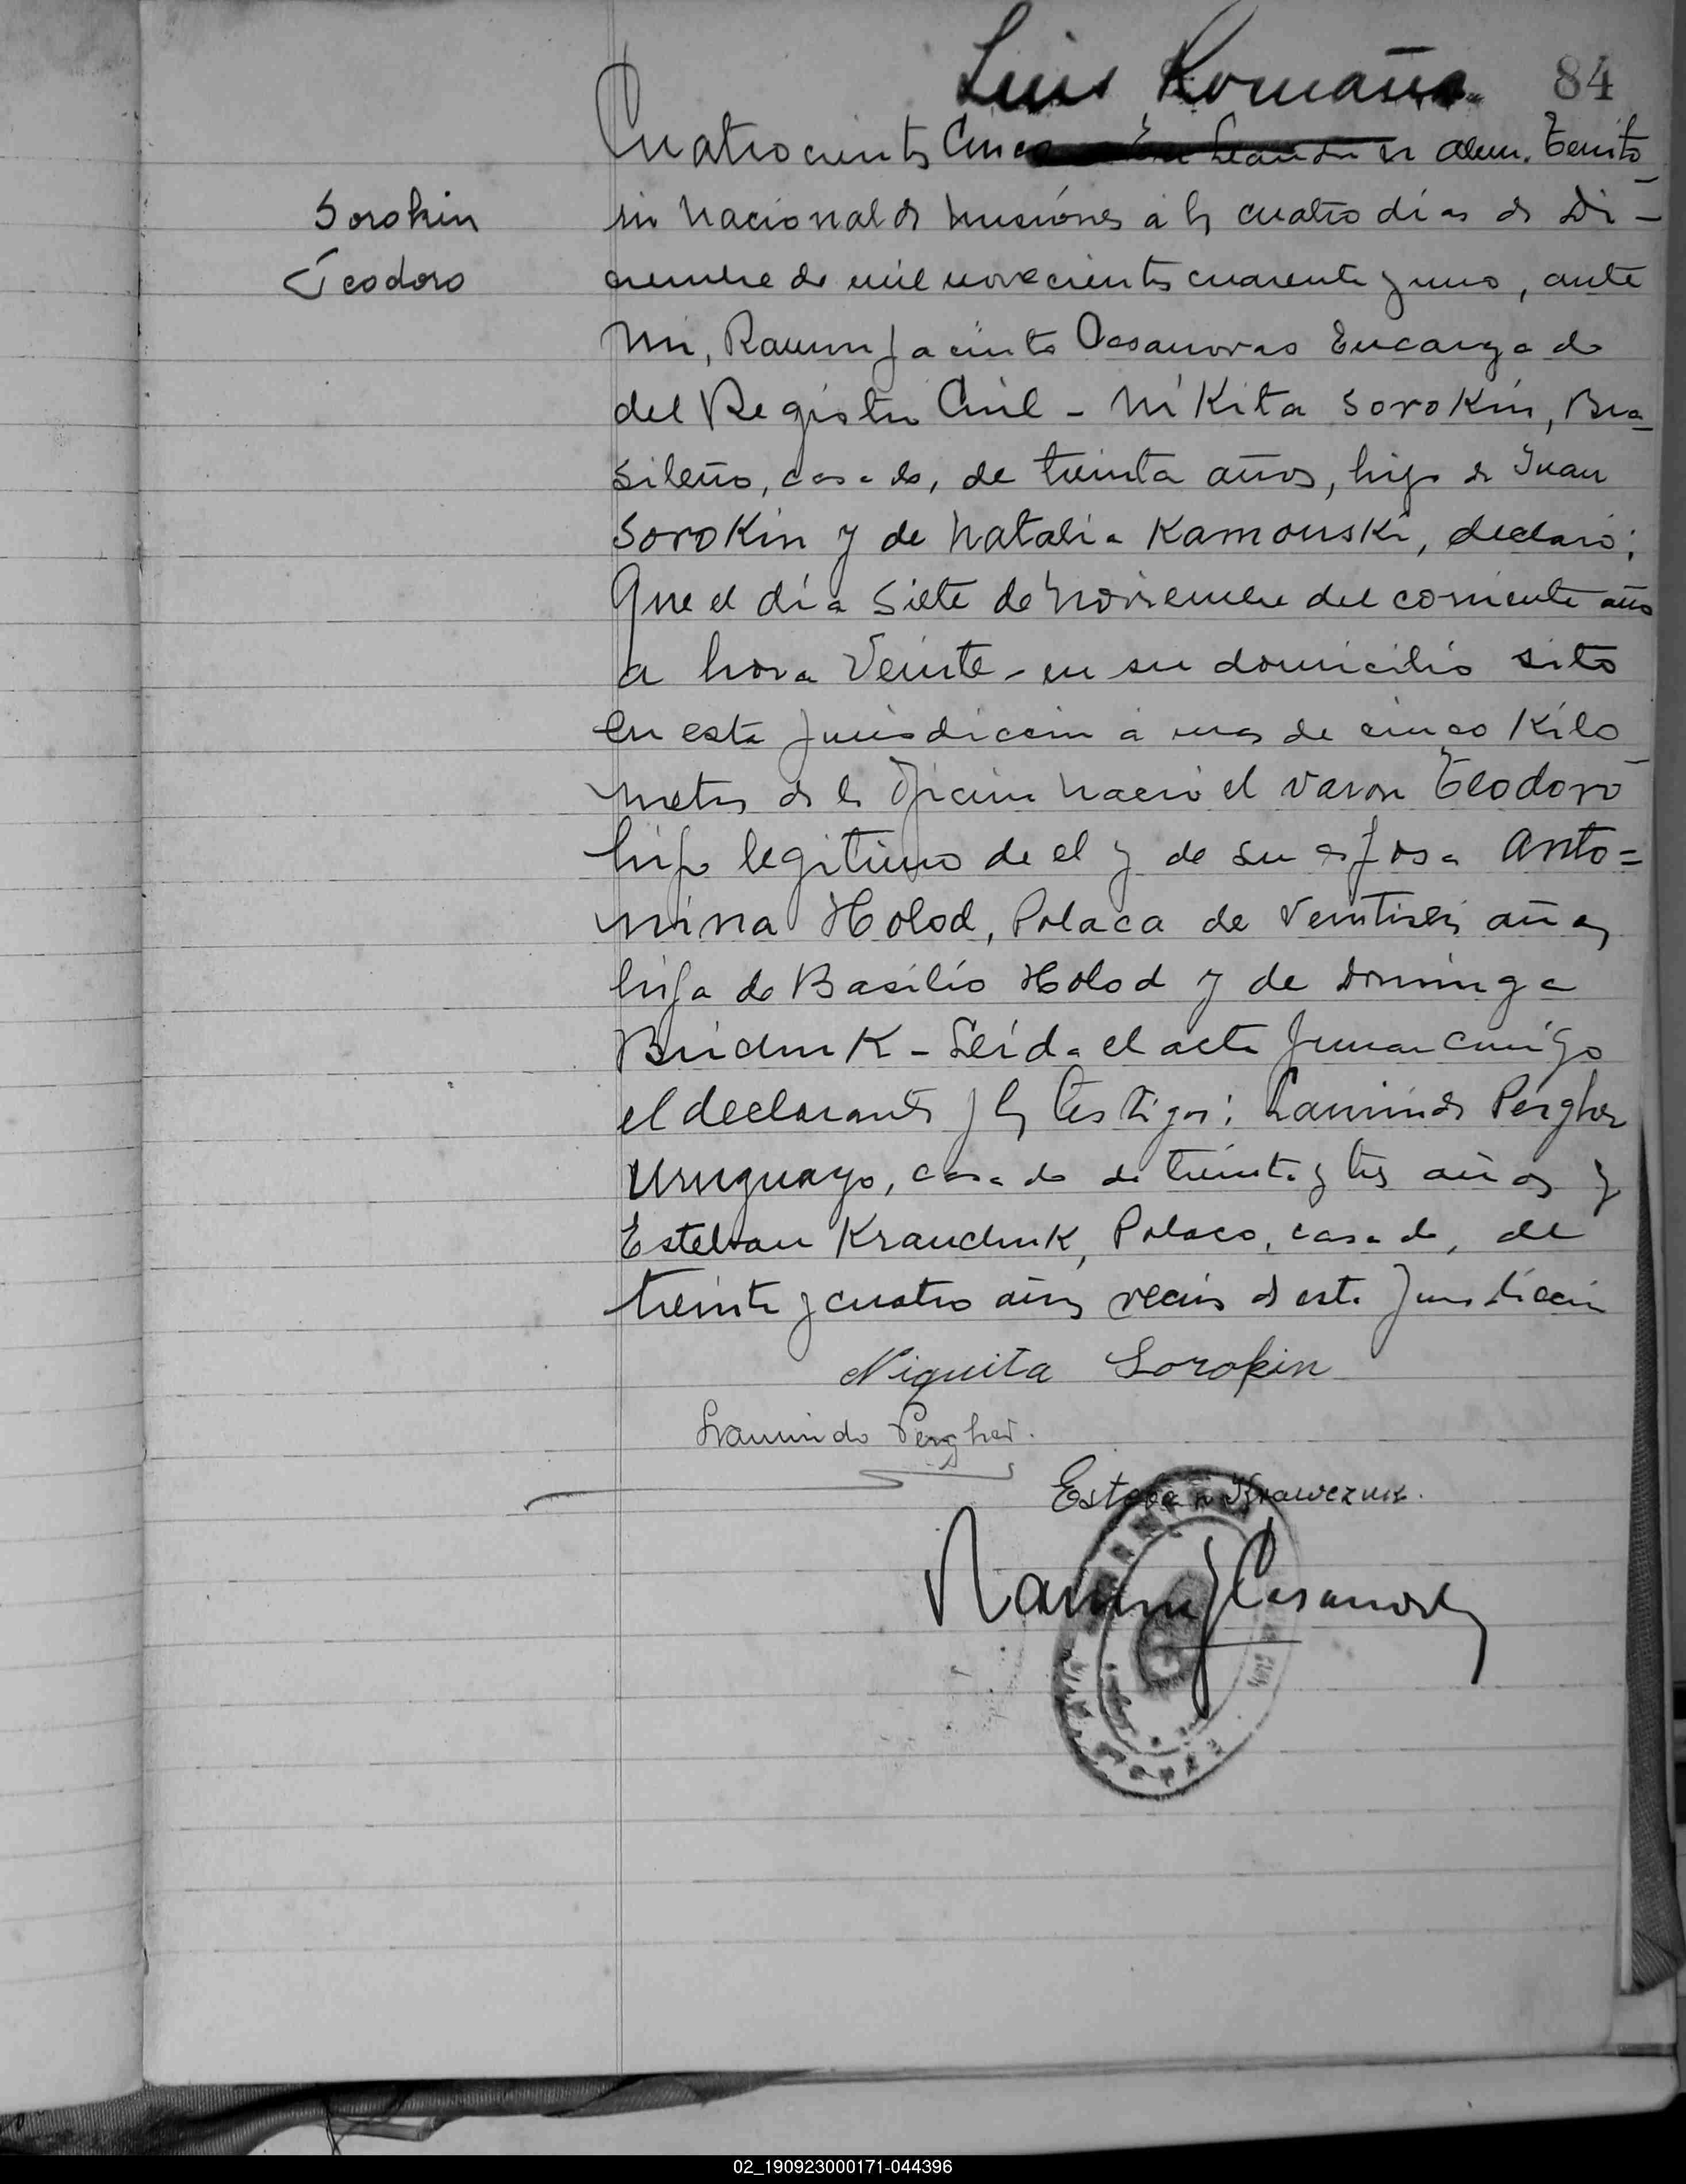 Luis Romaña 84
Cuatrocientos Cinco En Leandro N Alem. Territo
rio Nacional de Misiónes á los cuatro días de Di-
Sorokin
Teodoro
ciembre de mil novecientos cuarenta y uno, ante
Mi, Ramon Jacinto Casanovas Encargado
del Registro Civil - Nikita Sorokin, Bra
sileño, casado, de treinta años, hijo de Juan
Sorokin y de Natalia Kamouski, declaró:
Que el día Siete de Noviembre del corriente año
a hora Veinte - en su domicilio sito
en esta jurisdiccion a mas de cinco Kilo
metros de la Oficina nacio el varon Teodoro
hijo legitimo de el y de su esposa Anto=
nina Holod, Polaca de Veintiseis años
hija de Basilio Holod y de Dominga
- Leida el acta firman conmigo
el declarante y los testigos: Laurindo Pergher
Uruguayo, casado de treinta y tres años y
Esteban Krauchuk, Polaco, casado, de
treinta y cuatro años vecinos de esta Jurisdiccion
Niquita Sorokin
Laurindo Pergher.
Esteban Krawczuk.
Ramon J Casanovas
02_190923000171-044396